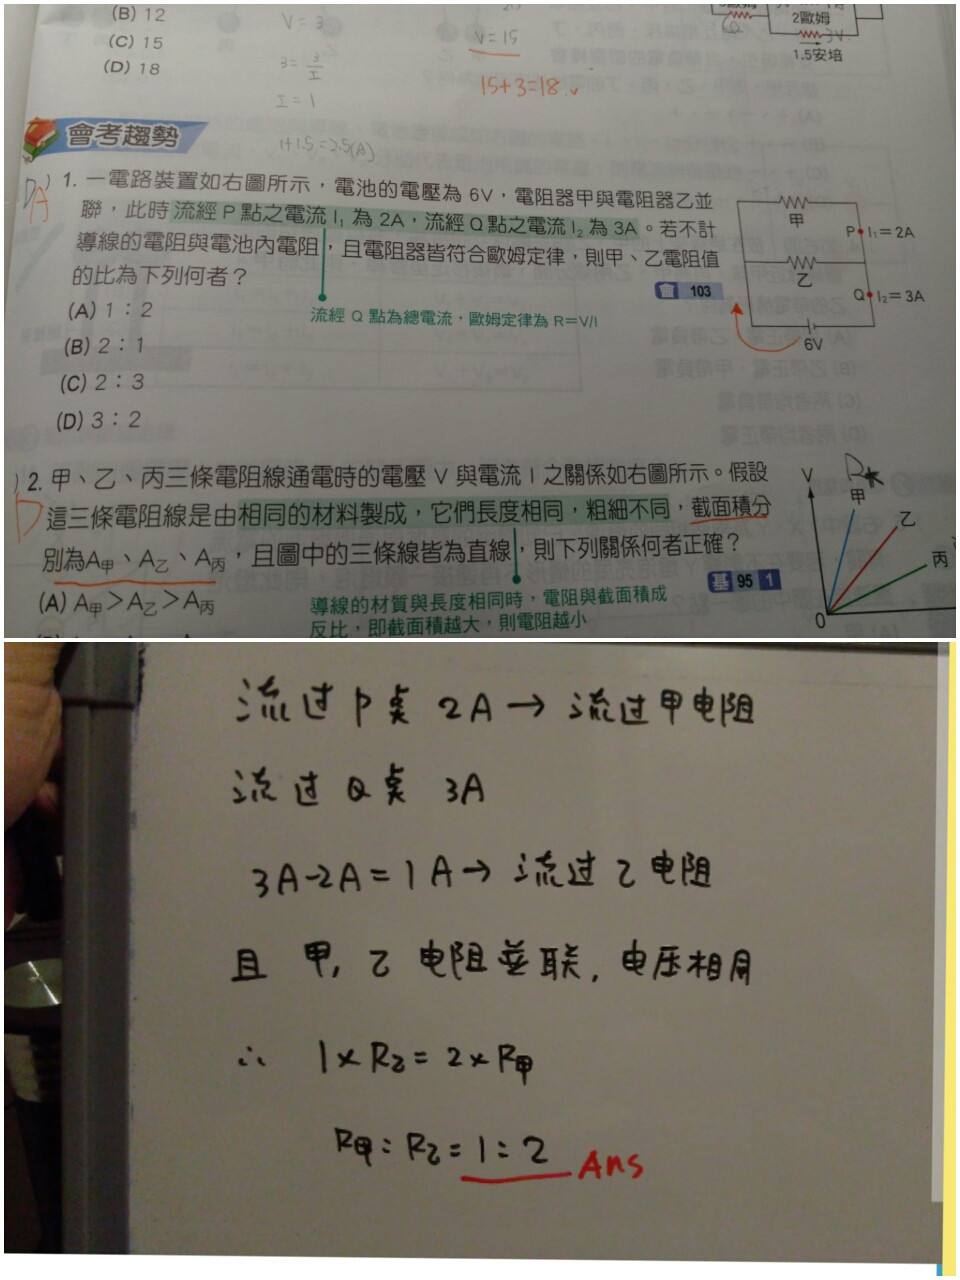 (B) 12
(C) 15
(D) 18
V = 3
3 = 3/I
I = 1
1+1.5 = 2.5(A)
V = 15
15+3=18
2歐姆
3V
1.5安培
會考趨勢
A
1. 一電路裝置如右圖所示，電池的電壓為 6V，電阻器甲與電阻器乙並
聯，此時流經 P 點之電流 I₁ 為 2A，流經 Q 點之電流 I₂ 為 3A。若不計
導線的電阻與電池內電阻，且電阻器皆符合歐姆定律，則甲、乙電阻值
的比為下列何者？
會 103
(A) 1：2
流經 Q 點為總電流，歐姆定律為 R=V/I
(B) 2：1
(C) 2：3
(D) 3：2
甲
P I₁=2A
乙
Q I₂=3A
6V
D
) 2. 甲、乙、丙三條電阻線通電時的電壓 V 與電流 I 之關係如右圖所示。假設
這三條電阻線是由相同的材料製成，它們長度相同，粗細不同，截面積分
別為A甲、A乙、A丙，且圖中的三條線皆為直線，則下列關係何者正確？
基 95 1
(A) A甲＞A乙＞A丙
導線的材質與長度相同時，電阻與截面積成
反比，即截面積越大，則電阻越小
V
甲
乙
丙
0
流过 P 点 2A → 流过甲电阻
流过 Q 点 3A
3A-2A = 1A → 流过乙电阻
且 甲, 乙 电阻並联, 电压相同
∴ 1×R乙 = 2×R甲
R甲 : R乙 = 1 : 2 Ans